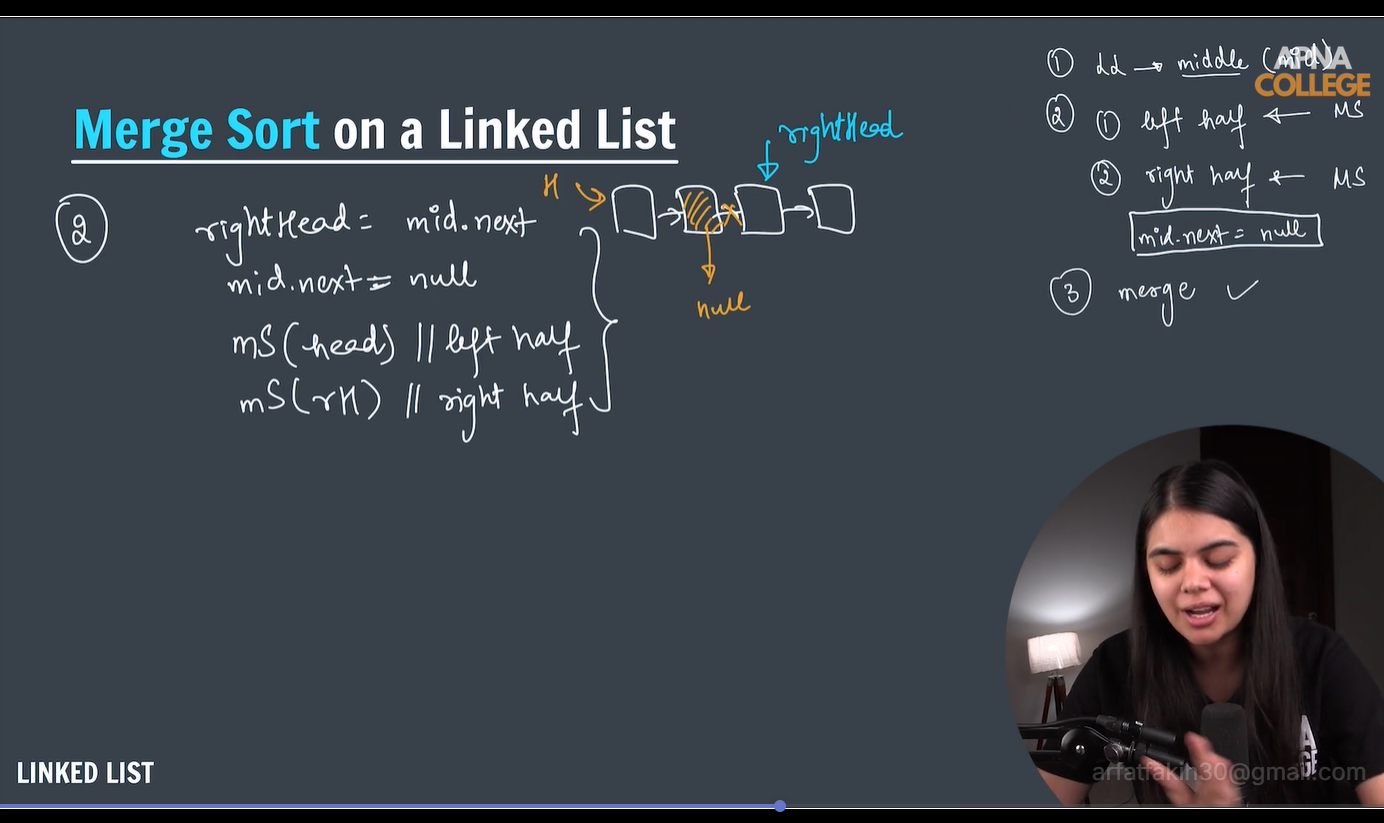 Merge Sort on a Linked List
②
rightHead = mid.next
mid.next = null
mS(head) // left half
mS(rH) // right half
H
rightHead
null
① LL → middle (mid)
② ① left half ← MS
② right half ← MS
mid.next = null
③ merge ✓
APNA
COLLEGE
LINKED LIST
arfatfakih30@gmail.com